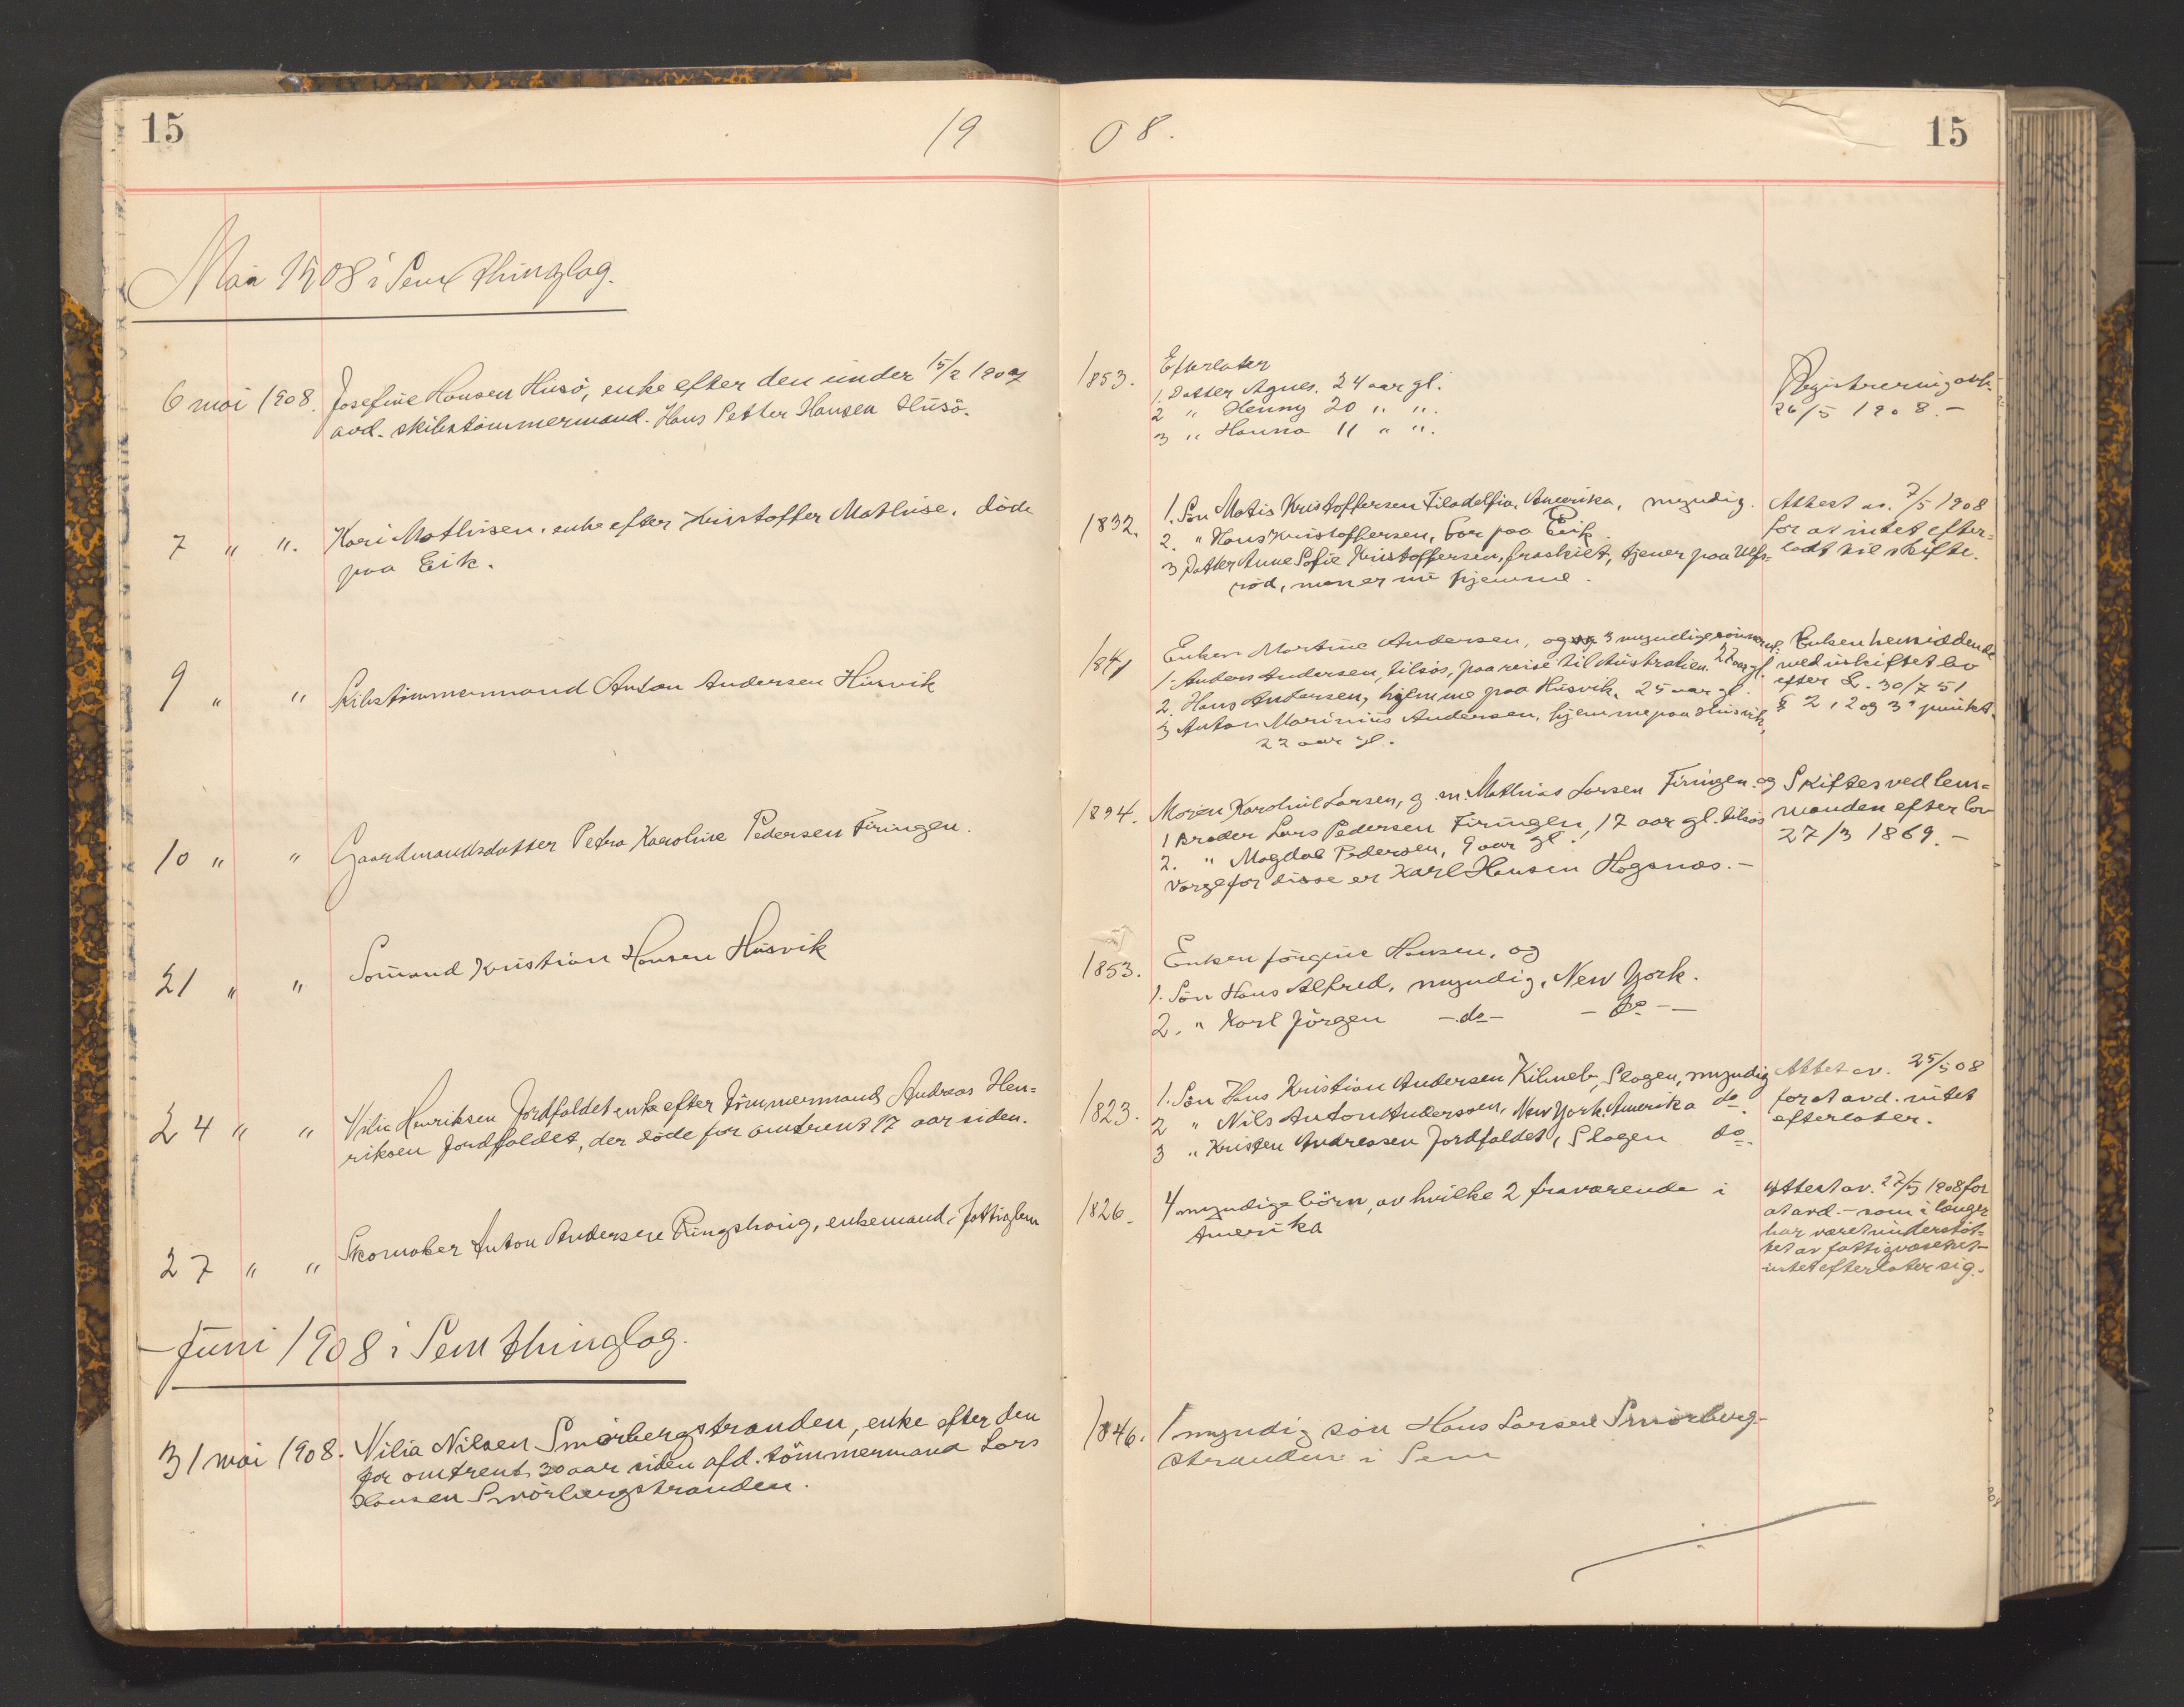 15
19
08.
15
Mai 1908 i Sem thinglag.
6 mai 1908. Josefine Hansen Husö, enke efter den under 15/2 1907
avd. skibstömmermand Hans Petter Hansen Husö.
1853. Efterlater
1. Datter Agnes. 24 aar gl.
2 " Henny 20 " ".
3 " Hanna 11 " ".
Registrering avh.
26/5 1908.-
7 " ". Kari Mathisen, enke efter Kristoffer Mathise. döde
paa Eik.
1832. 1. Sön Matis Kristoffersen Filadelfia, Amerika, myndig.
2. " Hans Kristoffersen, bor paa Eik
3 Datter Anne Sofie Kristoffersen, fraskilt, tjener paa Ulfs-
röd, men er nu hjemme.
Attest av. 7/5 1908
for at intet efter-
ladt til skifte.
9 " " Skibstömmermand Anton Andersen Husvik
1841 Enken Martine Andersen, og 3 myndige sönner:
1. Anders Andersen, tilsjös, paa reise til Australien. 32 aar gl.
2. Hans Andersen, hjemme paa Husvik. 25 aar gl.
3 Anton Marinius Andersen, hjemme paa Husvik,
22 aar gl.
Enken hensiddende
med uskiftet bo
efter L. 30/7 51
§ 2, 2 og 3' punkt.
10 " " Gaardmandsdatter Petra Karoline Pedersen Firingen.
1894. Moren Karoline Larsen, g. m. Mathias Larsen Firingen. og
1 Broder Lars Pedersen Firingen, 17 aar gl. tilsjös
2. " Magdal Pedersen, 9 aar gl.
Værge for disse er Karl Hansen Hogsnæs.-
Skiftes ved lens-
manden efter lov
27/3 1869.-
21 " " Sömand Kristian Hansen Husvik
1853. Enken Jörgine Hansen, og
1. Sön Hans Alfred, myndig, New York.
2. " Karl Jörgen -do- - do -
24 " " Vilia Henriksen Jordfaldet enke efter Tömmermand Andreas Hen-
riksen Jordfaldet, der döde for omtrent 17 aar siden.
1823. 1. Sön Hans Kristian Andersen Kilneb, Slagen, myndig
2 " Nils Anton Anderssen, New York. Amerika do.
3 " Kristen Andreasen Jordfaldet, Slagen do.
Attest av. 25/5 08
for at avd. intet
efterlater.
27 " " Skomaker Anton Andersen Ringshaug, enkemand, fattiglem
1826. 4 myndige börn, av hvilke 2 fraværende i
Amerika
Attest av. 27/5 1908 for
at avd. - som i længer
har været understöt-
tet av fattigvæsenet -
intet efterlater sig.
Juni 1908 i Sem thinglag.
31 mai 1908. Vilia Nilsen Smörbergstranden, enke efter den
for omtrent 30 aar siden afd. tömmermand Lars
Hansen Smörbergstranden.
1846. 1 myndig sön Hans Larsen Smörberg-
stranden i Sem